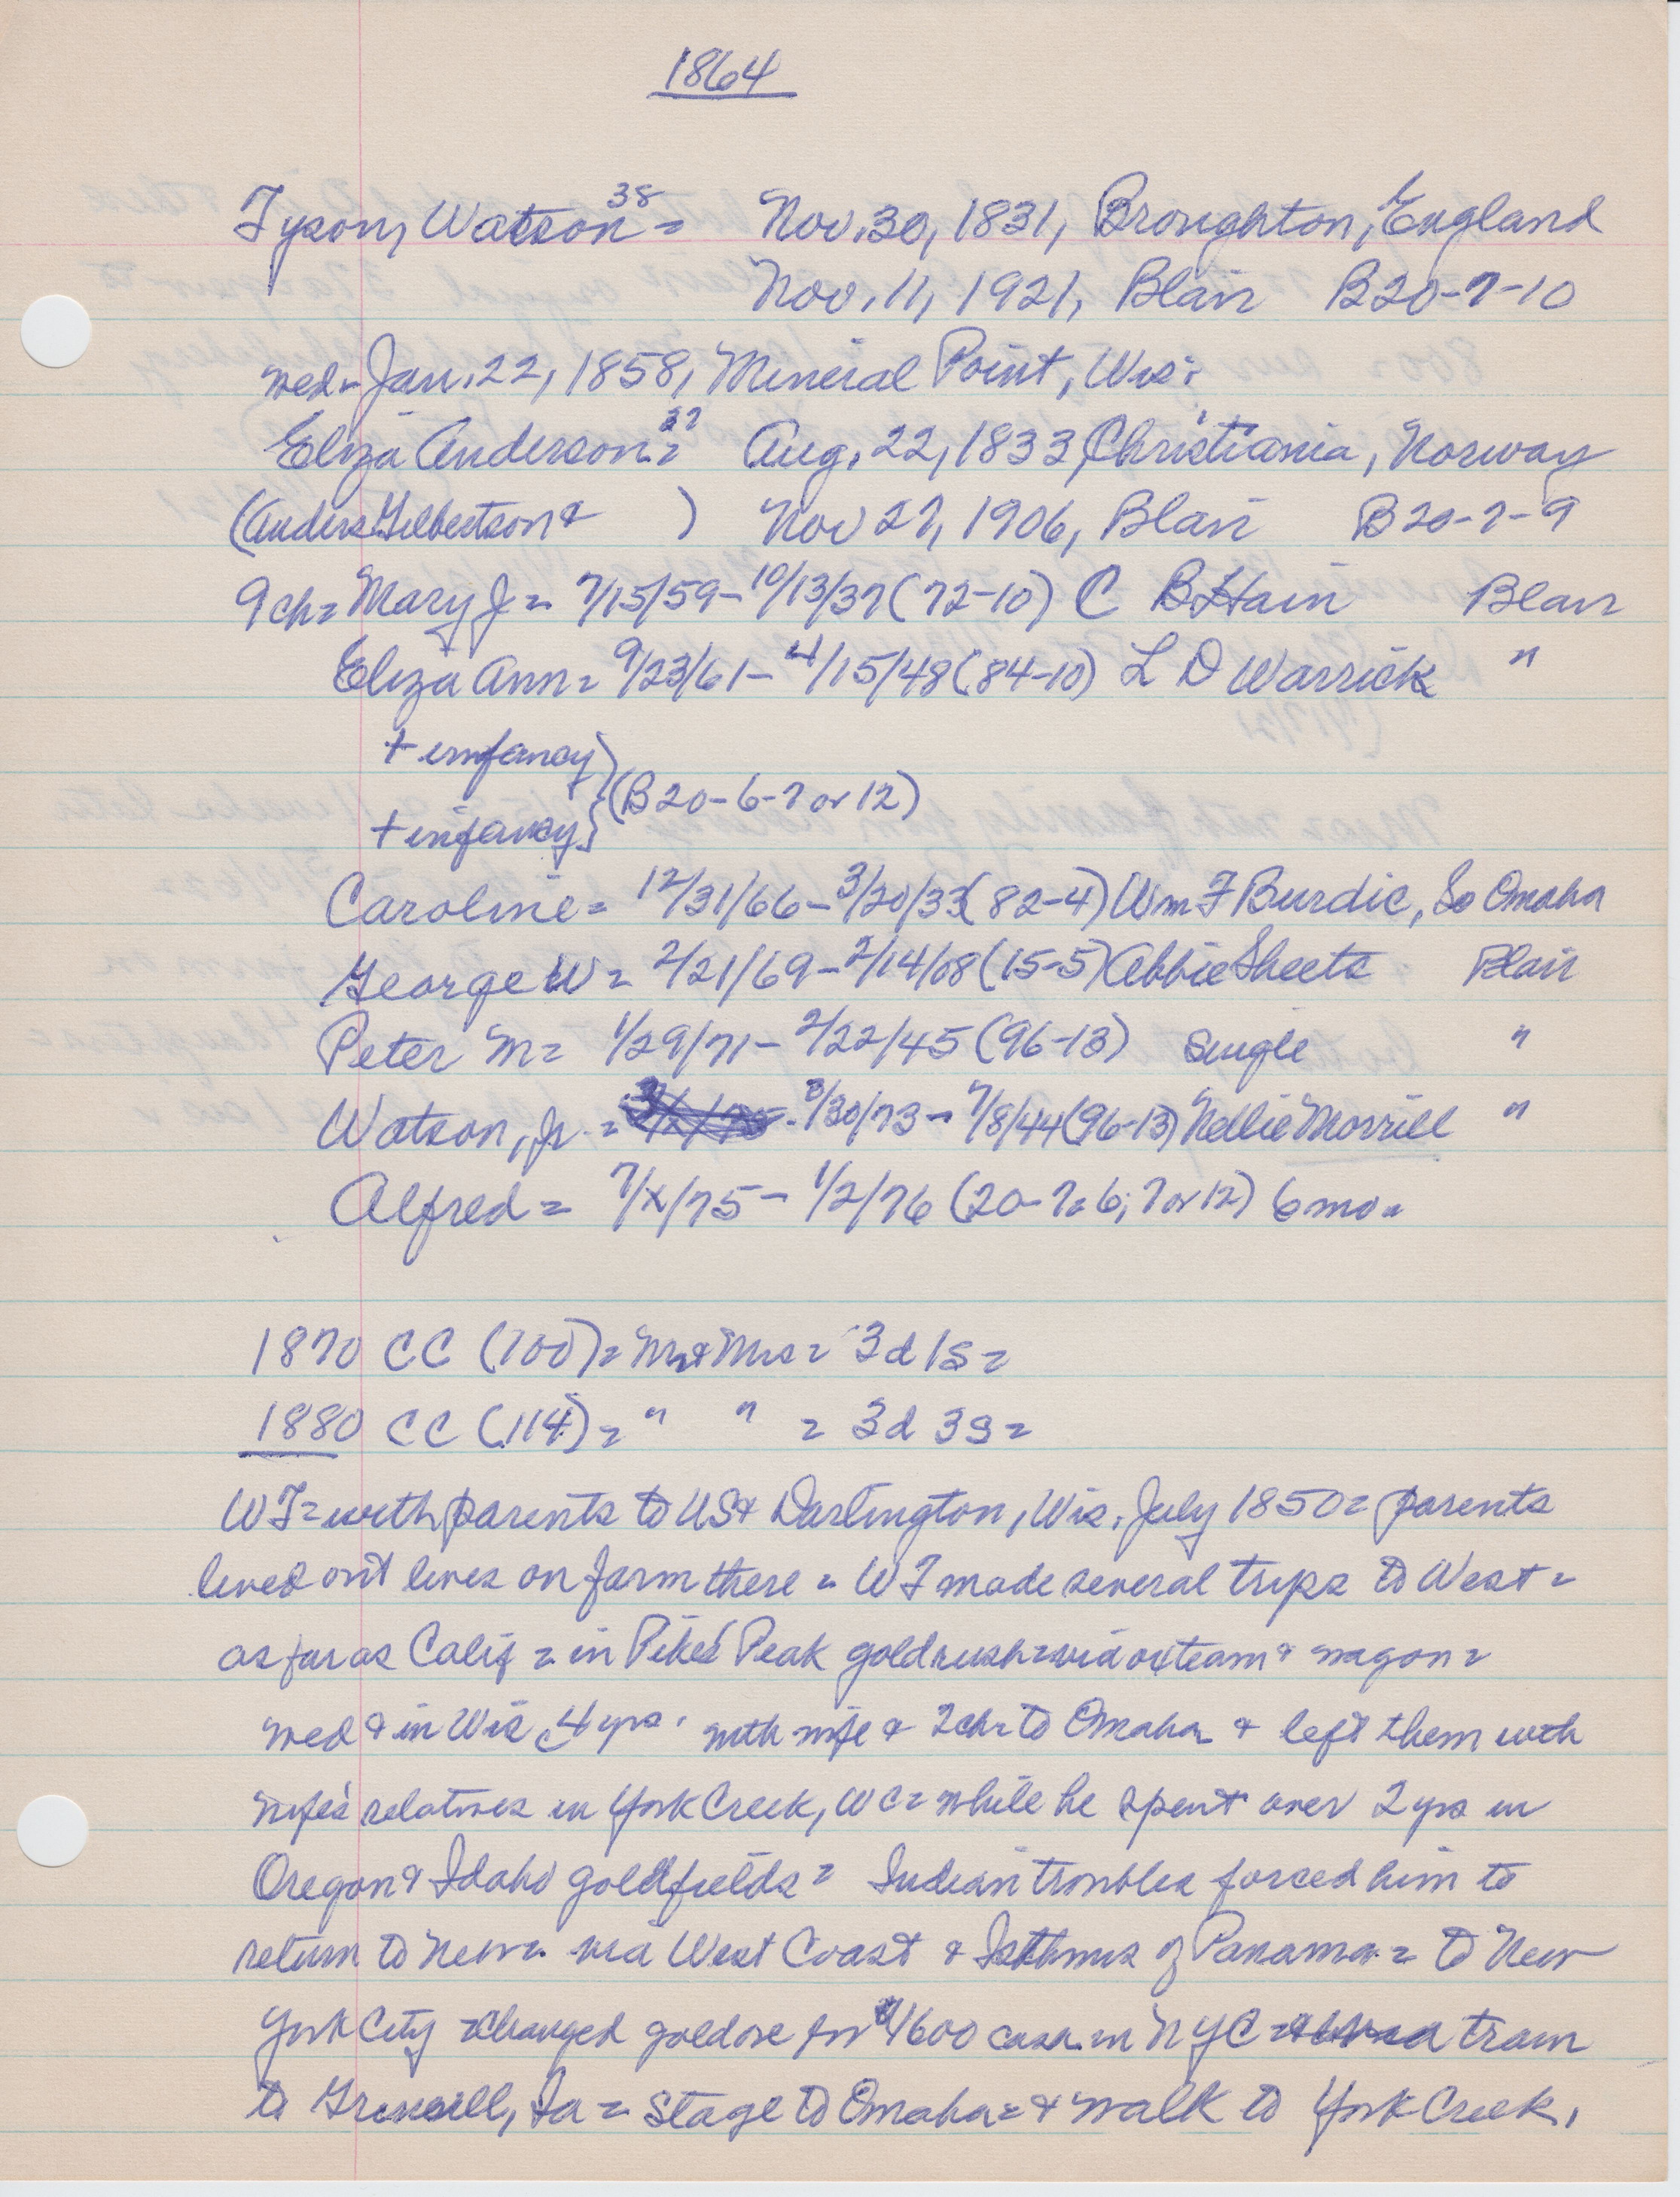 1864
Tyson, Watson 38 = Nov. 30, 1831, Broughton, England
Nov. 11, 1921, Blair B20-7-10
wed - Jan. 22, 1858, Mineral Point, Wis.
Eliza Anderson 37 = Aug. 22, 1833, Christiania, Norway
(Anders Gilbertson & ) Nov 27, 1906, Blair B20-7-9
9 ch = Mary J = 7/15/59 - 10/13/37 (72-10) C B Hain Blair
Eliza Ann = 9/23/61 - 4/15/48 (84-10) L D Warrick "
+ infancy }
(B20-6-7 or 12)
+ infancy }
Caroline = 12/31/66 - 3/20/33 (82-4) Wm F Burdic, So Omaha
George W = 2/21/69 - 2/14/08 (15-5) Abbie Sheets Blair
Peter M = 1/29/71 - 2/22/45 (96-13) single "
Watson, Jr. = 3/30/73 - 7/8/44 (96-13) Nellie Morrill "
Alfred = 7/x/75 - 1/2/76 (20-7=6; 7 or 12) 6 mo =
1870 CC (700) = Mr & Mrs = 3d 1s =
1880 CC (114) = " " = 3d 3s =
WT = with parents to US & Darlington, Wis. July 1850 = parents
lived out lives on farm there = WT made several trips to West =
as far as Calif = in Pike's Peak goldrush = via oxteam & wagon =
wed & in Wis 4 yrs. with wife & 2 ch to Omaha & left them with
wife's relatives in York Creek, WC = while he spent over 2 yrs in
Oregon & Idaho goldfields = Indian troubles forced him to
return to Neb = via West Coast & Isthmus of Panama = to New
York City = changed gold ore for $4600 cash in NYC = train
to Grinnell, Ia = stage to Omaha = & walk to York Creek.